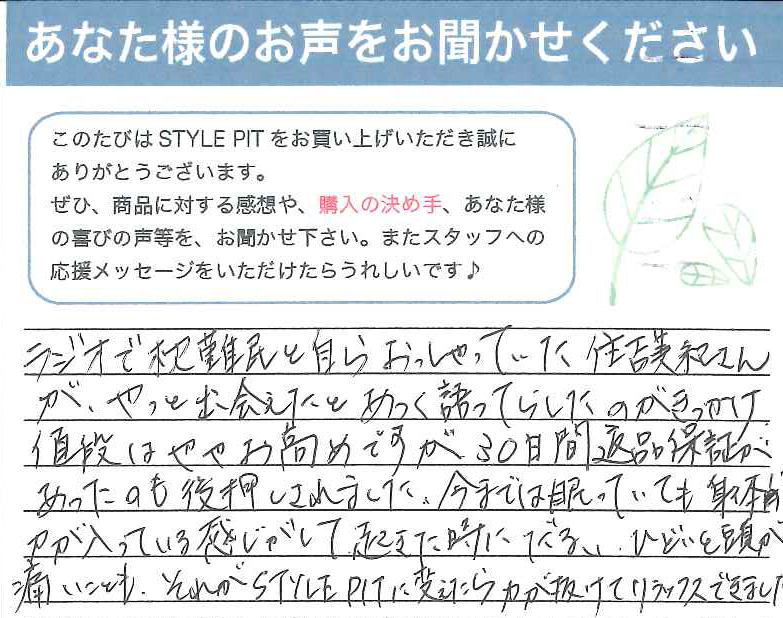 あなた様のお声をお聞かせください
このたびは STYLE PIT をお買い上げいただき誠に
ありがとうございます。
ぜひ、商品に対する感想や、購入の決め手、あなた様
の喜びの声等を、お聞かせ下さい。またスタッフへの
応援メッセージをいただけたらうれしいです♪
ラジオで枕難民と自らおっしゃっていた住吉美紀さん
が、やっと出会えたとあつく語ってらしたのがきっかけ
値段はややお高めですが、30日間返品保証が
あったのも後押しされました。今までは眠っていても身体
力が入っている感じがして起きた時にだるい、ひどいと頭が
痛いことも。それがSTYLE PITに変えたら力が抜けてリラックスできました